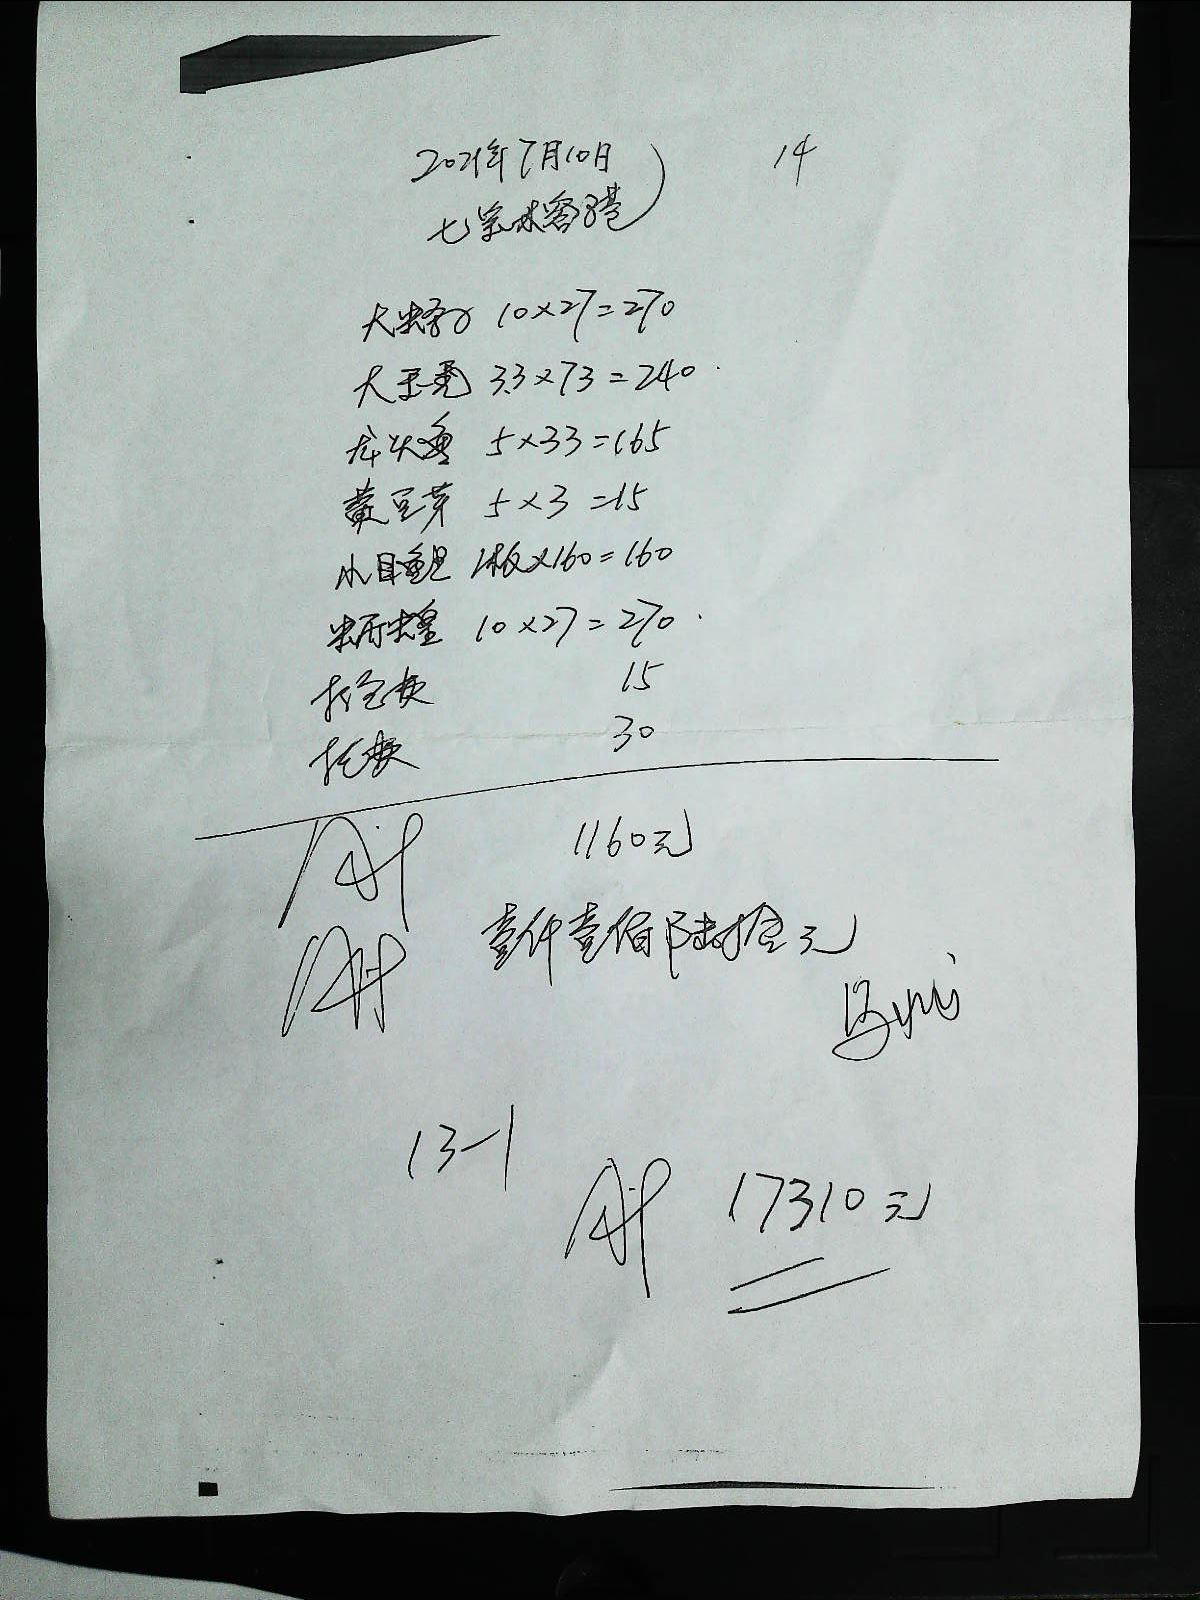 2021年7月10日
14
七宗
大虾 10×27=270
大玉亮 3.3×73=240
龙头鱼 5×33=165
黄豆芽 5×3=15
小目鲍 1板×160=160
10×27=270
打包费 15
托费 30
1160元
壹仟壹佰陆拾元
13-1
17310元